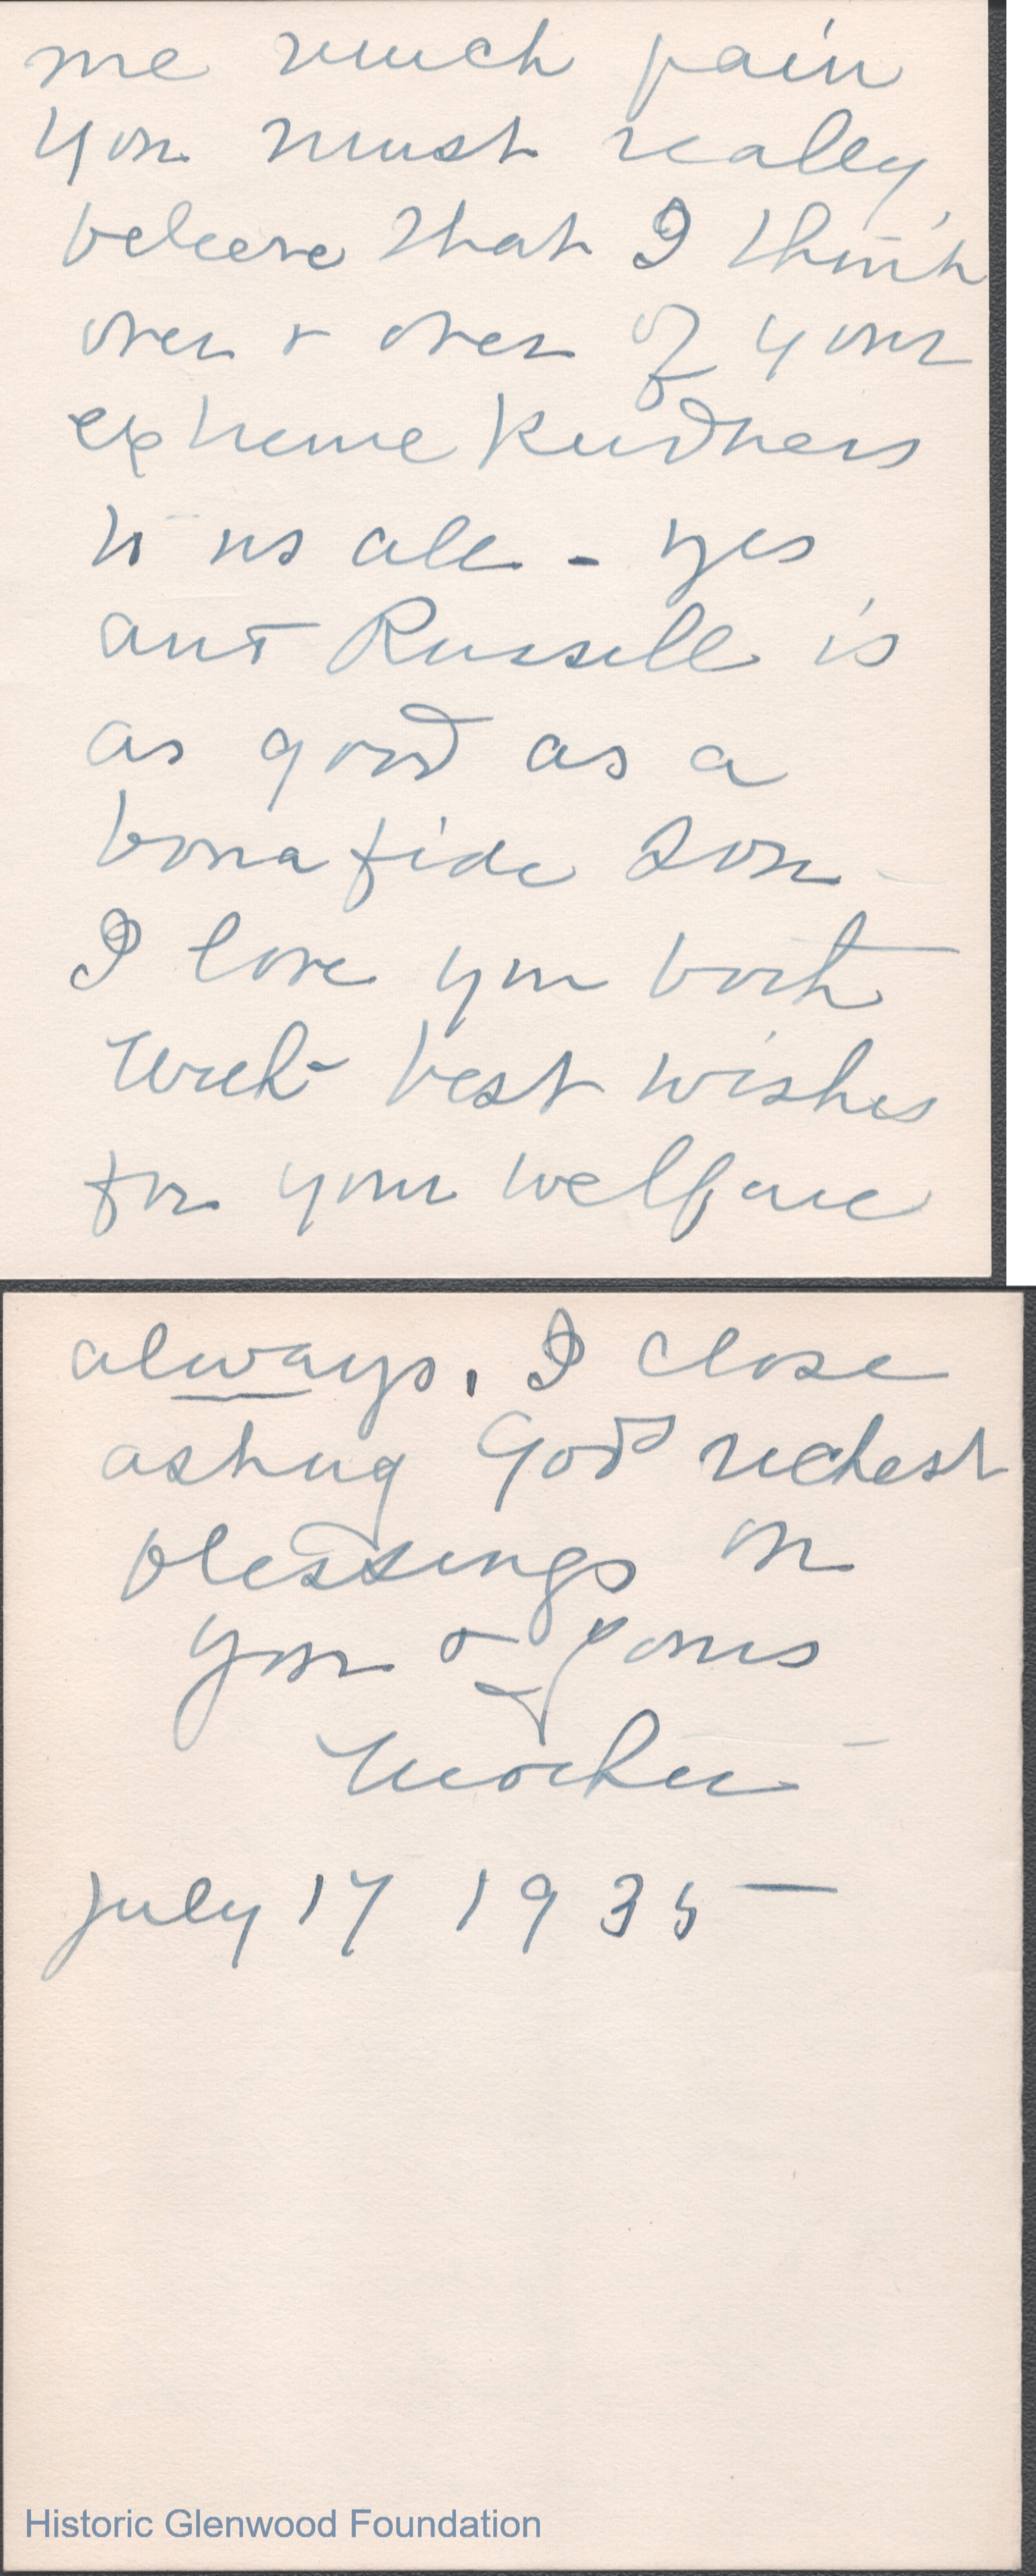 me much pain
You must really
beleeve that I think
over & over of your
extreme kindness
to us all - yes
and Russell is
as good as a
bona fide son -
I love you both
with best wishes
for your welfare
always. I close
asking God richest
blessings on
you & yours
Mother -
July 17 1935 -
Historic Glenwood Foundation